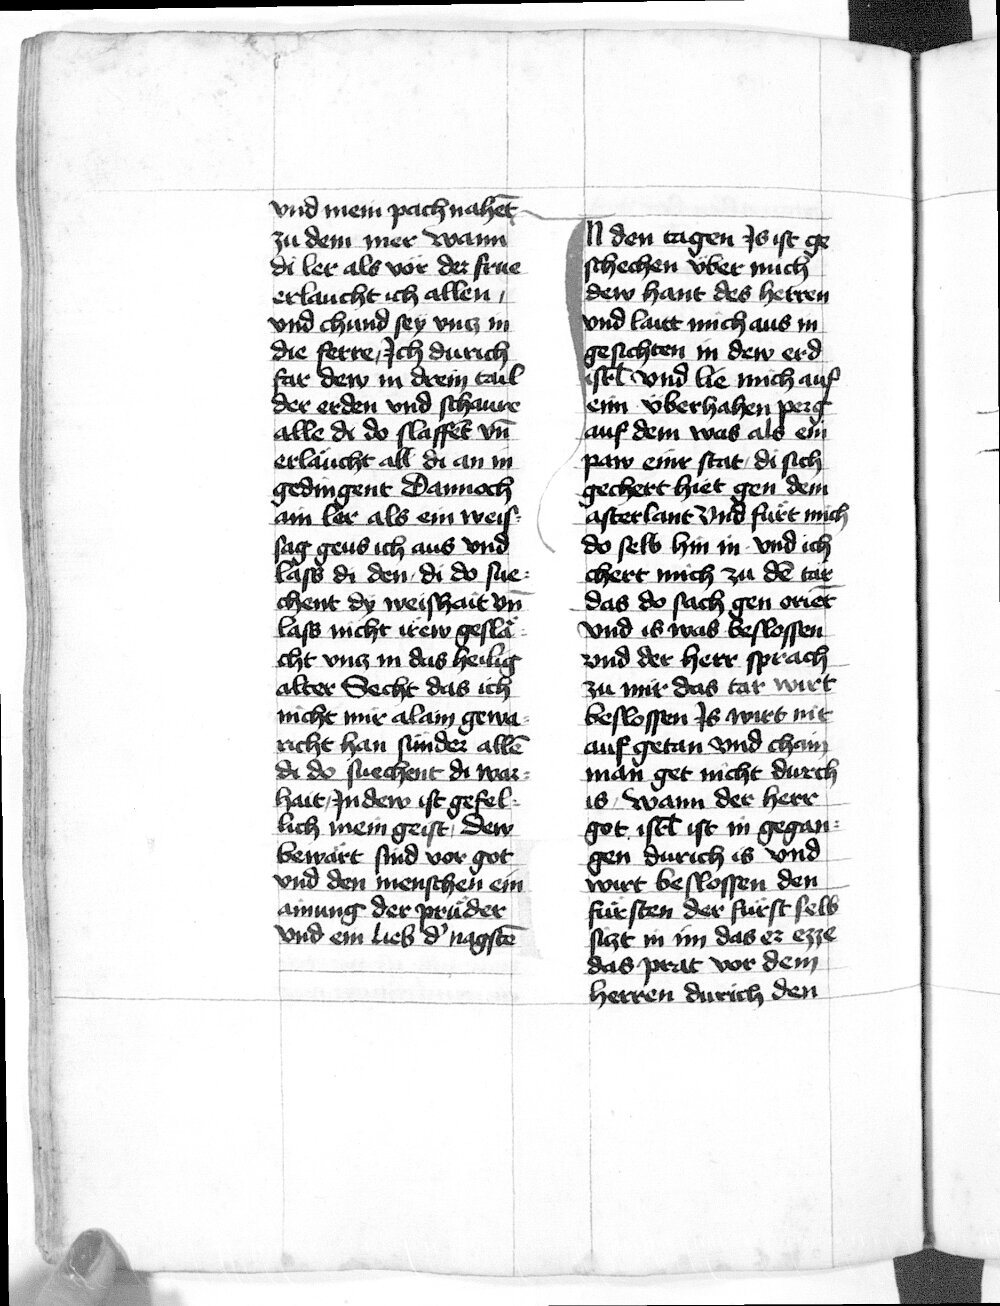 vnd mein pach nahet̄
zu dem mer wann
di ler als vor der frue
erlaucht ich allen /
vnd chund sey vncz in
die ferre / Jch durich
far dew in drein tail
der erden vnd schawe
alle di do slaffet̄ vn̄
erlaücht all di an in
gedingent Dannoch
ain ler als ein weis=
sag geus ich aus vnd
lass di den di do sue=
chent dy weishait vn̄
lass nicht irew geslä=
cht vncz in das heilig
alter Secht das ich
nicht mir alain gewa=
richt han sunder allē
di do suechent di war=
hait / Jn dew ist gefel=
lich mein geist / Dew
bewärt sind vor got
vnd den menschen ein
ainung der prüder
vnd ein lieb d' nagstē
JN den tagen Js ist ge
schechen vber mich
dew hant des herren
vnd laitt mich aus in
gesichten in dew erd
isrl̄ vnd lie mich auf
ein vberhahen perg
auf dem was als ein
paw einr stat / di sich
gechert hiet gen dem
asterlant Vnd fürt mich
do selb hin in vnd ich
chert mich zu dē tar
das do sach gen oriēt
vnd is was beslossen
vnd der herr sprach
zu mir das tar wirt
beslossen Js wirt nit
auf getan vnd chain
man get nicht durch
is / Wann der herr
got isrl̄ ist in gegan=
gen durich is vnd
wirt beslossen den
fürsten der fürst selb
siczt in im das er ezze
das prat vor dem
herren durich den